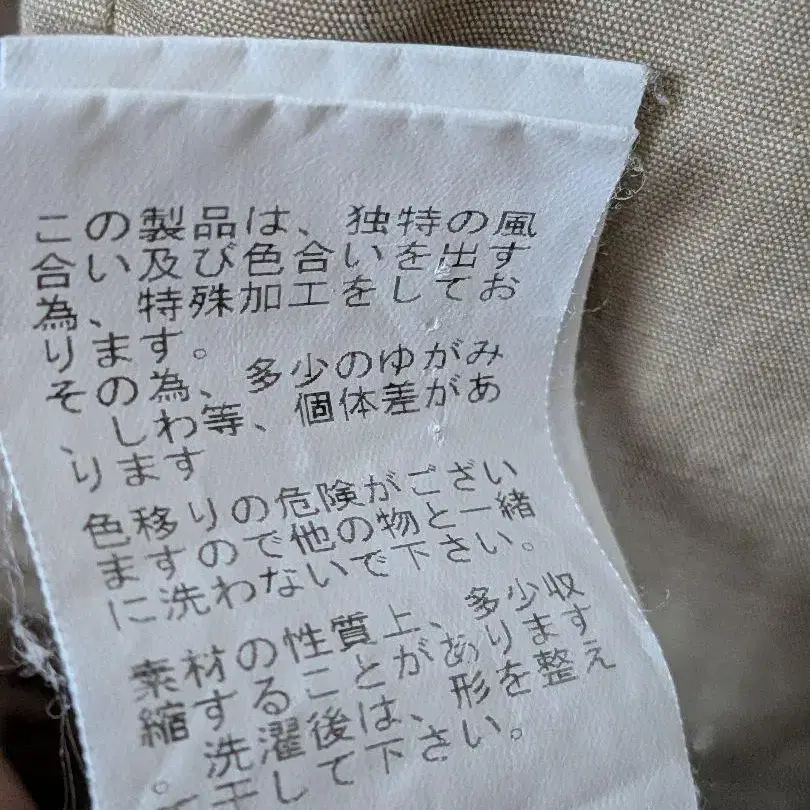 この製品は、独特の風
合い及び色合いを出す
為、特殊加工をしてお
ります。
その為、多少のゆがみ
、しわ等、個体差があ
ります
色移りの危険がござい
ますので他の物と一緒
に洗わないで下さい。
素材の性質上、多少収
縮することがあります
。洗濯後は、形を整え
て干して下さい。